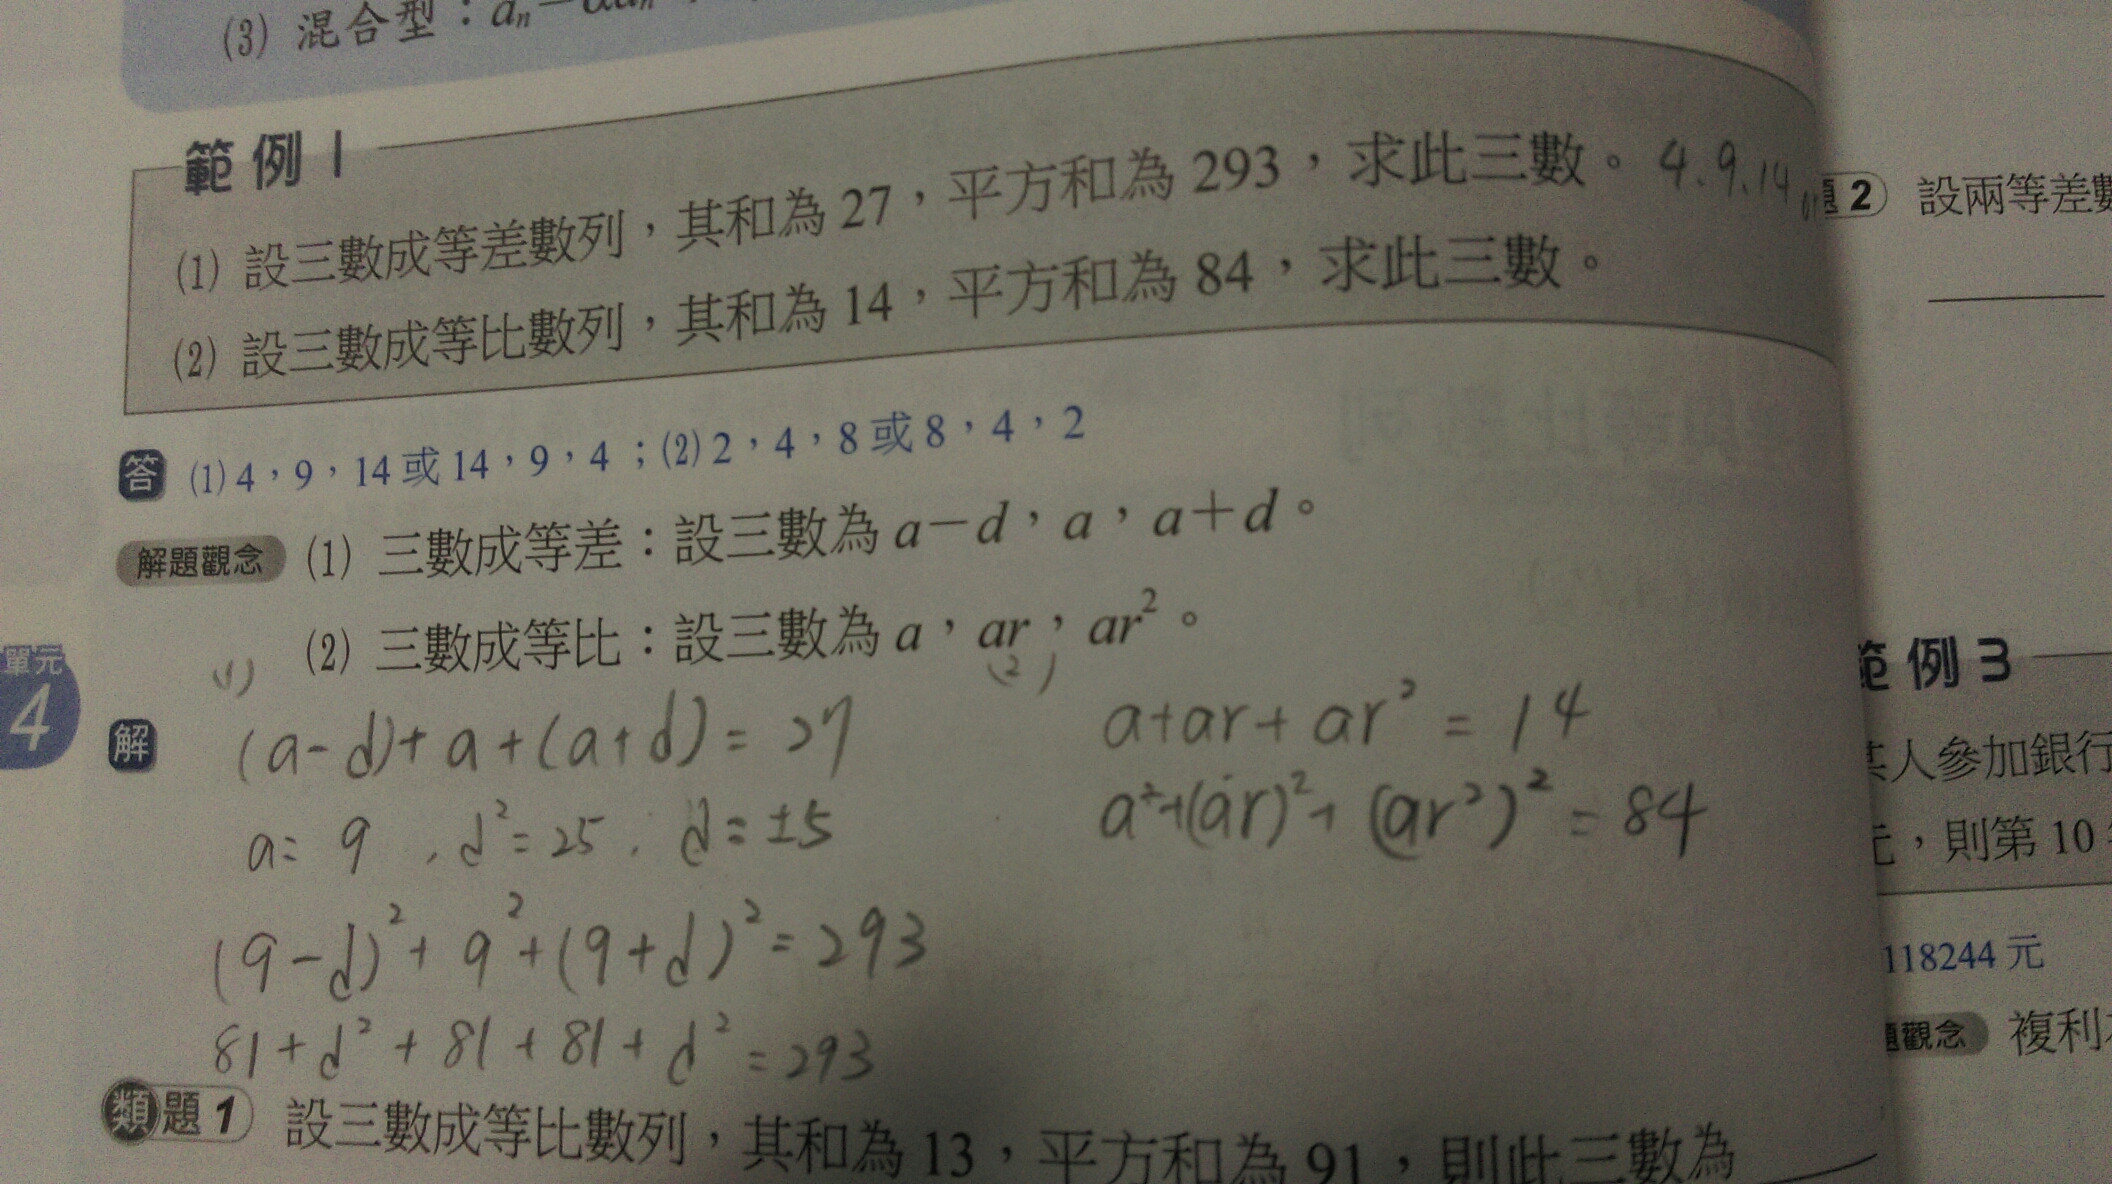 (3) 混合型：aₙ－
範例1
(1) 設三數成等差數列，其和為 27，平方和為 293，求此三數。 4.9.14 or
(2) 設三數成等比數列，其和為 14，平方和為 84，求此三數。
答 (1) 4，9，14 或 14，9，4；(2) 2，4，8 或 8，4，2
解題觀念 (1) 三數成等差：設三數為 a－d，a，a＋d。
(2) 三數成等比：設三數為 a，ar，ar²。
單元
4
解
(1)
(a-d)+a+(a+d)=27
a=9 , d²=25 , d=±5
(9-d)²+9²+(9+d)²=293
81+d²+81+81+d²=293
(2)
a+ar+ar²=14
a²+(ar)²+(ar²)²=84
類題1 設三數成等比數列，其和為 13，平方和為 91，則此三數為
題2 設兩等差數
範例3
某人參加銀行
元，則第 10
118244 元
題觀念 複利